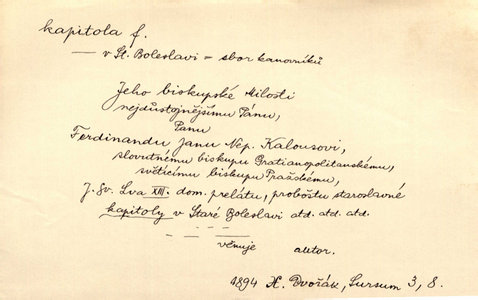 kapitola f.
— v St. Boleslavi = sbor kanovníků
Jeho biskupské Milosti
nejdůstojnějšímu Pánu,
Panu
Ferdinandu Janu Nep. Kalousovi,
slovutnému biskupu Gratianopolitanskému,
světícímu biskupu Pražskému,
J. Sv. Lva XIII. dom. prelátu, proboštu staroslavné
kapitoly v Staré Boleslavi atd. atd. atd.
věnuje autor.
1894 X. Dvořák, Sursum 3, 8.